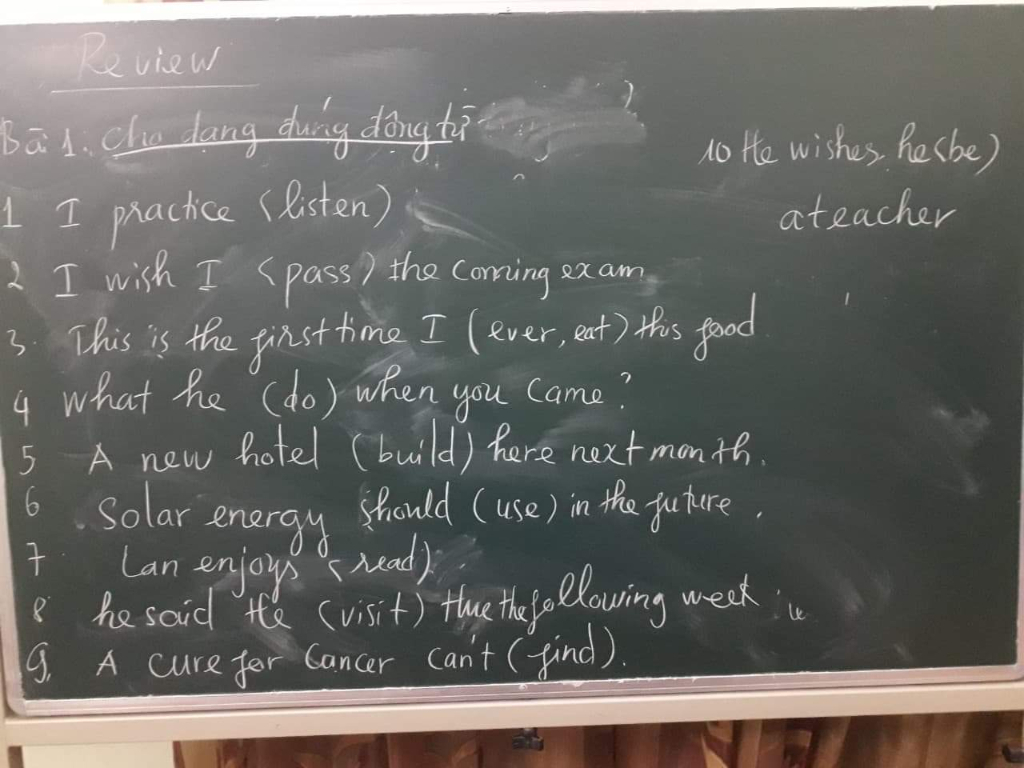 Review
Bà 1. Cho dạng đúng động từ
1 I practice (listen)
2 I wish I (pass) the coming exam
3. This is the first time I (ever, eat) this food
4 What he (do) when you came?
5 A new hotel (build) here next month.
6 Solar energy should (use) in the future.
7 Lan enjoys (read)
8 he said He (visit) Hue the following week
9. A cure for cancer can't (find).
10 He wishes he (be)
a teacher